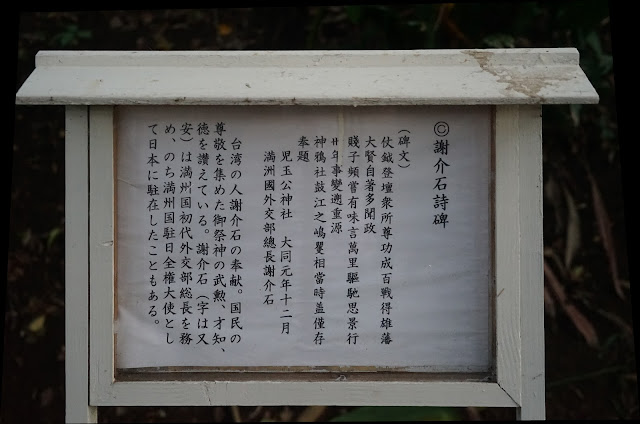 ◎謝介石詩碑
(碑文)
仗鉞登壇衆所尊功成百戦得雄藩
大賢自著多聞政
賤子頻嘗有味言萬里驅馳思景行
卅年事變遡重源
神鴉社鼓江之嶋矍相當時盖僅存
奉題
児玉公神社　大同元年十二月
満洲國外交部總長謝介石
台湾の人謝介石の奉献。国民の
尊敬を集めた御祭神の武勲、才知、
徳を讃えている。謝介石(字は又
安)は満州国初代外交部総長を務
め、のち満州国駐日全権大使とし
て日本に駐在したこともある。